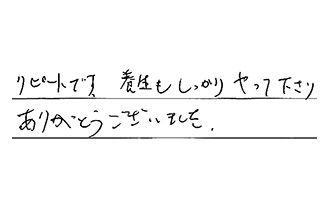 リピートです 養生もしっかりやって下さり
ありがとうございました.